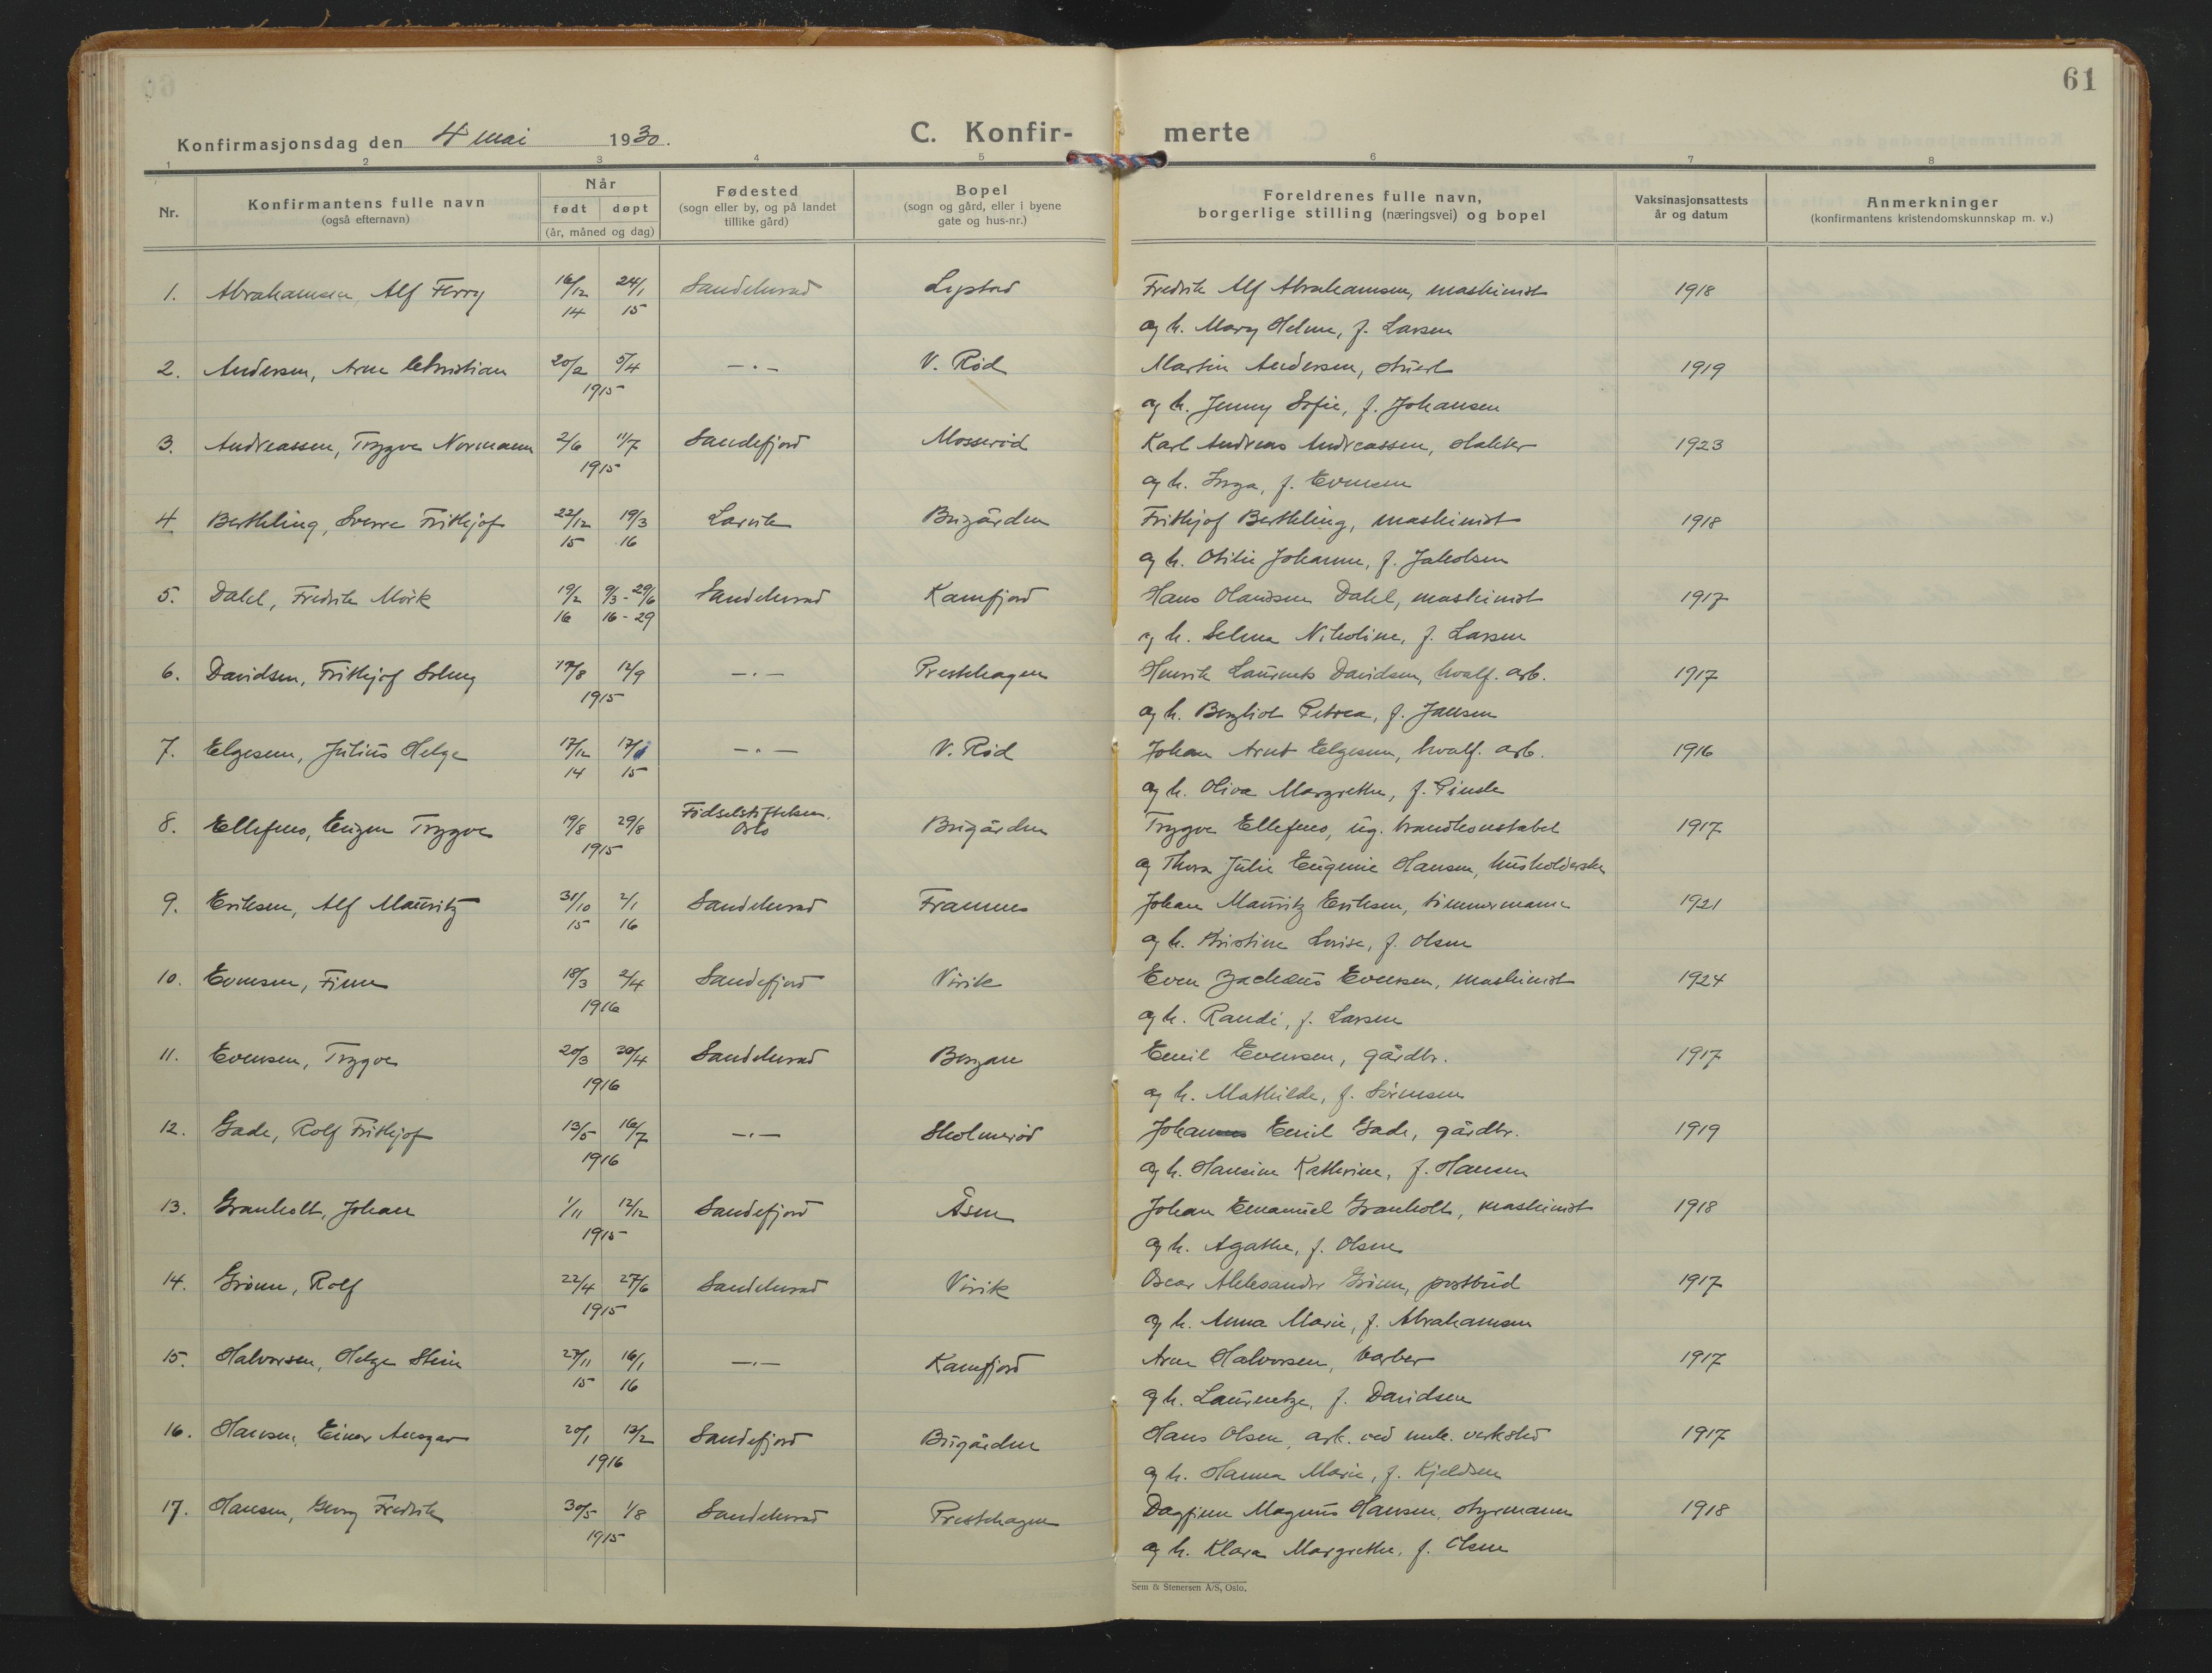 61
Konfirmasjonsdag den 4 mai 1930.
C. Konfir- merte
1 2 3 4 5 6 7 8
Nr.
Konfirmantens fulle navn
(også efternavn)
Når
født døpt
(år, måned og dag)
Fødested
(sogn eller by, og på landet
tillike gård)
Bopel
(sogn og gård, eller i byene
gate og hus-nr.)
Foreldrenes fulle navn,
borgerlige stilling (næringsvei) og bopel
Vaksinasjonsattests
år og datum
Anmerkninger
(konfirmantens kristendomskunnskap m. v.)
1. Abrahamsen, Alf Ferry 16/12 24/1 Sandeherad Lystad Fredrik Alf Abrahamsen, maskinist 1918
14 15 og h. Mary Helene, f. Larsen
2. Andersen, Arne Christian 20/2 5/4 -.- V. Rød Martin Andersen, stuert 1919
1915 og h. Jenny Sofie, f. Johansen
3. Andreassen, Trygve Normann 2/6 11/7 Sandefjord Mosserød Karl Andreas Andreassen, slakter 1923
1915 og h. Inga, f. Evensen
4. Berthling, Sverre Frithjof 22/12 19/3 Larvik Bugården Frithjof Berthling, maskinist 1918
15 16 og h. Otilie Johanne, f. Jakobsen
5. Dahl, Fredrik Mørk 19/2 9/3-29/6 Sandeherad Kamfjord Hans Olaussen Dahl, maskinist 1917
16 16-29 og h. Selma Nikoline, f. Larsen
6. Davidsen, Frithjof Solvey 17/8 12/9 -.- Prestehagen Henrik Laurents Davidsen, hvalf. arb. 1917
1915 og h. Bergliot Petrea, f. Jansen
7. Elgesem, Julius Helge 17/12 17/1 -.- V. Rød Johan Arnt Elgesem, hvalf. arb. 1916
14 15 og h. Oliva Margrethe, f.
8. Ellefsen, Eugen Trygve 19/8 29/8 Fødselsstiftelsen, Oslo Bugården Trygve Ellefsen, ug. brandkonstabel 1917
1915 og Thora Julie Eugenie Hansen, husholderske
9. Eriksen, Alf Mauritz 31/10 2/1 Sandeherad Framnes Johan Mauritz Eriksen, tømmermann 1921
15 16 og h. Kristine Lovise, f. Olsen
10. Evensen, Finn 18/3 2/4 Sandefjord Virik Even Zachæus Evensen, maskinist 1924
1916 og h. Randi, f. Larsen
11. Evensen, Trygve 20/3 30/4 Sandeherad Bergan Emil Evensen, gårdbr. 1917
1916 og h. Mathilde, f. Sørensen
12. Gade, Rolf Frithjof 13/5 16/7 -.- Skolmerød Johannes Emil Gade, gårdbr. 1919
1916 og h. Hansine Kathrine, f. Hansen
13. Granholt, Johan 1/11 12/12 Sandefjord Åsen Johan Emanuel Granholt, maskinist 1918
1915 og h. Agathe, f. Olsen
14. Grønn, Rolf 22/4 27/6 Sandeherad Virik Oscar Aleksander Grønn, postbud 1917
1915 og h. Anna Marie, f. Abrahamsen
15. Halvorsen, Helge Stein 27/11 16/1 -.- Kamfjord Arne Halvorsen, barber 1917
15 16 og h. Laurentze, f. Davidsen
16. Hansen, Einar Ansgar 20/1 13/2 Sandefjord Bugården Hans Olsen, arb. ved mek. verksted 1917
1916 og h. Hanna Marie, f. Kjeldsen
17. Hansen, Georg Fredrik 30/5 1/8 Sandeherad Prestehagen Dagfinn Magnus Hansen, styrmann 1918
1915 og h. Klara Margrethe, f. Olsen
Sem & Stenersen A/S, Oslo.